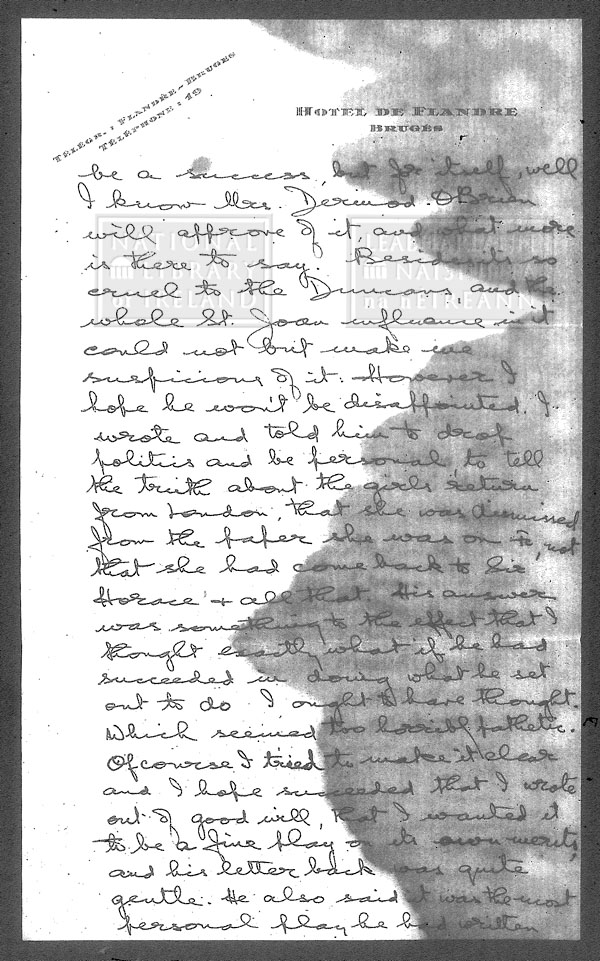 TELÉGR.: FLANDRE-BRUGES
TÉLÉPHONE: 19
HOTEL DE FLANDRE
BRUGES
be a success, but for itself, well
I know Mrs. Dermod O'Brien
will approve of it, and what more
is there to say. Besides its so
cruel to the Duncans, and the
whole St. Joan influence in it
could not but make me
suspicious of it. However I
hope he won't be disappointed. I
wrote and told him to drop
politics and be personal, to tell
the truth about the girls return
from London, that she was dismissed
from the paper she was on, not
that she had come back to Sir
Horace & all that. His answer
was something to the effect that I
thought exactly what if he had
succeeded in doing what he set
out to do I ought to have thought.
Which seemed too horribl pathetic.
Ofcourse I tried to make it clear
and I hope succeeded that I wrote
out of good will, that I wanted it
to be a fine play on its own merits,
and his letter back was quite
gentle. He also said it was the most
personal play he had written
NATIONAL LIBRARY of IRELAND
LEABHARLANN NÁISIÚNTA na hÉIREANN